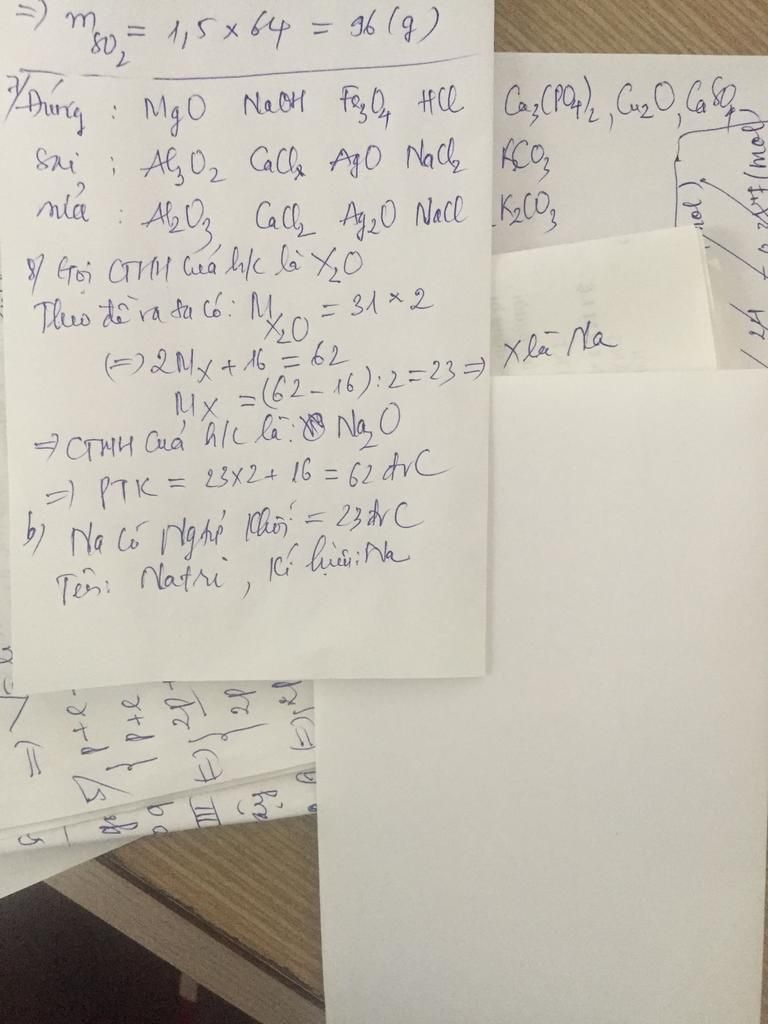 =) mSO2 = 1,5 × 64 = 96 (g)
7/ Đúng : MgO NaOH Fe3O4 HCl Ca3(PO4)2, Cu2O, CaSO4
Sai : Al3O2 CaCl3 AgO NaCl2 KCO3
sửa : Al2O3 CaCl2 Ag2O NaCl K2CO3
8/ Gọi CTHH của h/c là X2O
Theo đề ra ta có: MX2O = 31 × 2
(=) 2MX + 16 = 62
MX = (62 - 16) : 2 = 23 => X là Na
=> CTHH của h/c là: Na2O
=) PTK = 23×2 + 16 = 62 đvC
b) Na có Nguyê khối = 23 đvC
Tên: Natri, Kí hiệu: Na
=)
5/ p+e
{ p+e
(=) { 2p
2p
(=)
III